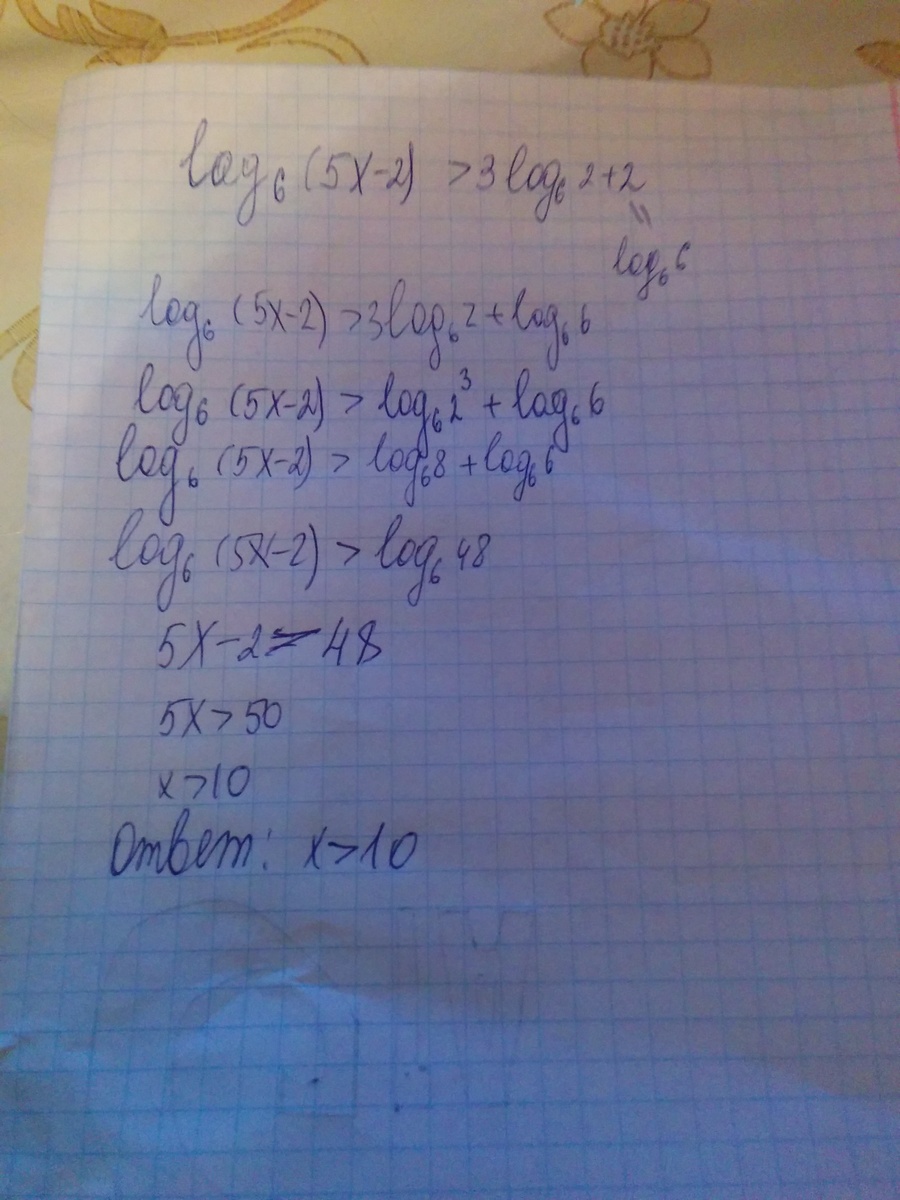 log₆ (5x-2) > 3 log₆ 2+2
"
log₆ 6
log₆ (5x-2) > 3 log₆ 2 + log₆ 6
log₆ (5x-2) > log₆ 2³ + log₆ 6
log₆ (5x-2) > log₆ 8 + log₆ 6
log₆ (5x-2) > log₆ 48
5x-2 > 48
5x > 50
x > 10
Ответ: x > 10